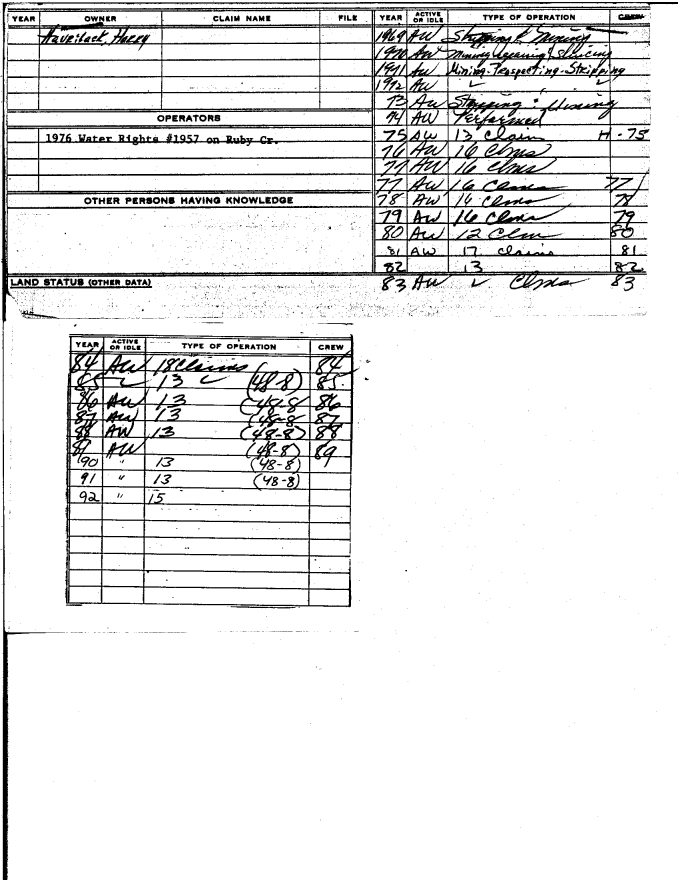 YEAR OWNER CLAIM NAME FILE YEAR ACTIVE OR IDLE TYPE OF OPERATION CREW
Havrilack, Harry
1969 AW Stripping & Mining
1970 AW Mining, & Sluicing
1971 AW Mining-Prospecting-Stripping
1972 AW ✓ ✓
73 AW Stripping & Mining
74 AW Performed
OPERATORS
1976 Water Rights #1957 on Ruby Cr.
75 AW 13 Claim H-75
76 AW 16 Clms
77 AW 16 Clms
77 AW 16 Clms 77
78 AW 16 Clms 78
79 AW 16 Clms 79
80 AW 12 Clm 80
81 AW 17 claims 81
82 13 82
83 AW ✓ Clms 83
OTHER PERSONS HAVING KNOWLEDGE
LAND STATUS (OTHER DATA)
YEAR ACTIVE OR IDLE TYPE OF OPERATION CREW
84 AW 18 Claims 84
85 ✓ 13 ✓ (48-8) 85
86 AW 13 (48-8) 86
87 AW 13 (48-8) 87
88 AW 13 (48-8) 88
89 AW (48-8) 89
90 " 13 (48-8)
91 " 13 (48-8)
92 " 15